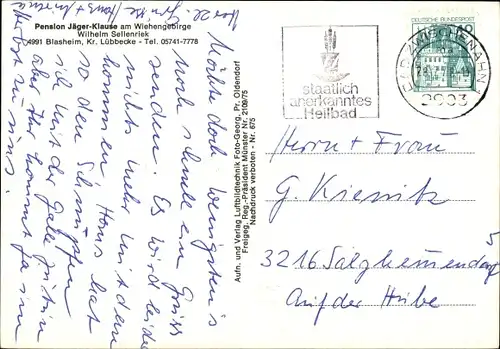 Pension Jäger-Klause am Wiehengebirge
Wilhelm Sellenriek
4991 Blasheim, Kr. Lübbecke - Tel. 05741-7778
Möchte doch wenigstens
noch schnell ein Gruss
senden. Es wird leider
nichts mehr mit dem
Haus hat
so den Schnupfen
sich mit der Galle
aber Ihr kommt ja im
Herbst zu uns.
Herzl. Grüsse
Aufn. und Verlag Luftbildtechnik Foto-Georg, Pr. Oldendorf
Freigeg. Reg.-Präsident Münster Nr. 2109/75
Nachdruck verboten - Nr. 675
staatlich
anerkanntes
Heilbad
DEUTSCHE BUNDESPOST
BAD ZWISCHENAHN 1
2903
Herrn + Frau
G. Kienitz
3216 Salzhemmendorf 5
Auf der Hube